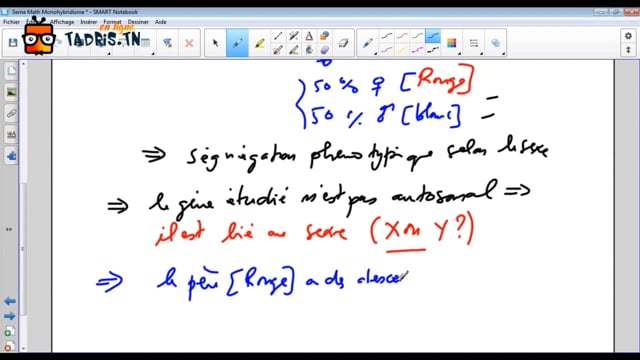 3eme Math Monohybridisme * - SMART Notebook
Fichier Edition Affichage Insérer Format Outils Dessin Aide
en ligne
TADRIS.TN
50 % ♀ [Rouge]
50 % ♂ [blanc]
⇒ ségrégation phenotypique selon le sexe
⇒ le gène étudié n'est pas autosomal ⇒
il est lié au sexe (X ou Y ?)
⇒ le père [Rouge] a des desce